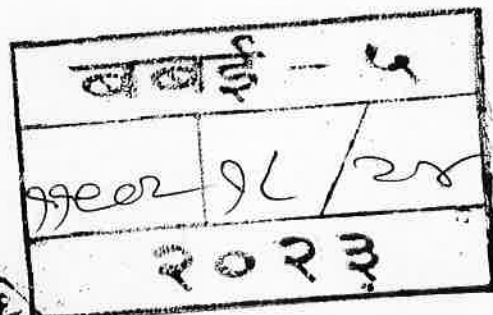 बबई - ५
११९०२ १८ / २४
२०२३